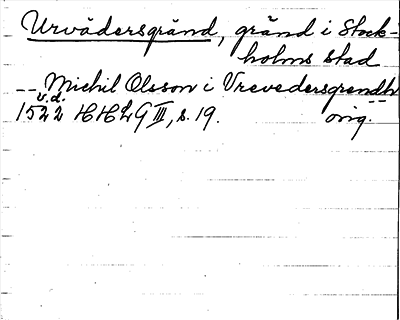 Urvädersgränd, gränd i Stock-
holms stad
-- Michil Olsson i Vrevedersgrendh --
v.d.
1522 HHLG III, s. 19. orig.